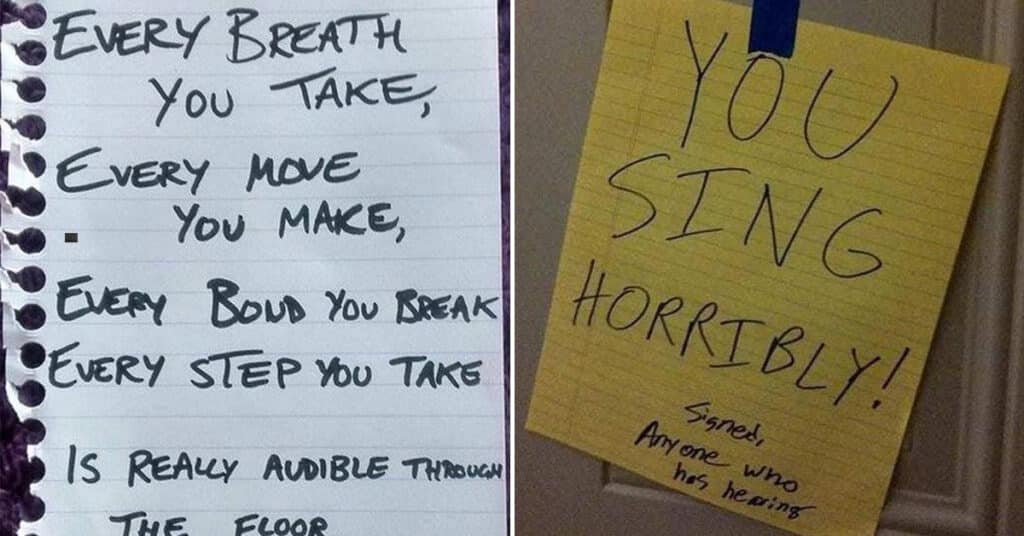 EVERY BREATH
YOU TAKE,
EVERY MOVE
YOU MAKE,
EVERY BOND YOU BREAK
EVERY STEP YOU TAKE
IS REALLY AUDIBLE THROUGH
THE FLOOR
YOU
SING
HORRIBLY!
Signed,
Anyone who
has hearing